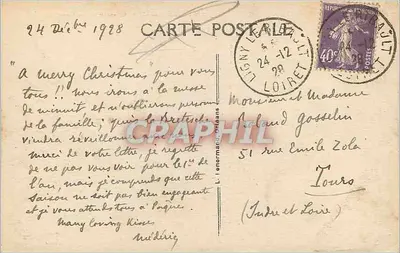 24 Décbre 1928
CARTE POSTALE
"A merry Christmas" pour vous
tous!! nous irons à la messe
de minuit et n'oublierons personne
de la famille, puis la
viendra réveillonner
Merci de votre lettre, je regrette
de ne pas vous voir pour le 1er de
l'an, mais je comprends que cette
saison ne soit pas bien engageante
et je vous attends tous à Pâques.
Many loving kisses
Médéric
LIGNY-LE-RIBAULT
24-12
28
LOIRET
40c
Monsieur et Madame
Roland Gosselin
51 rue Emile Zola
Tours
(Indre et Loire)
L. Lenormand, Orléans
CPAPHIL